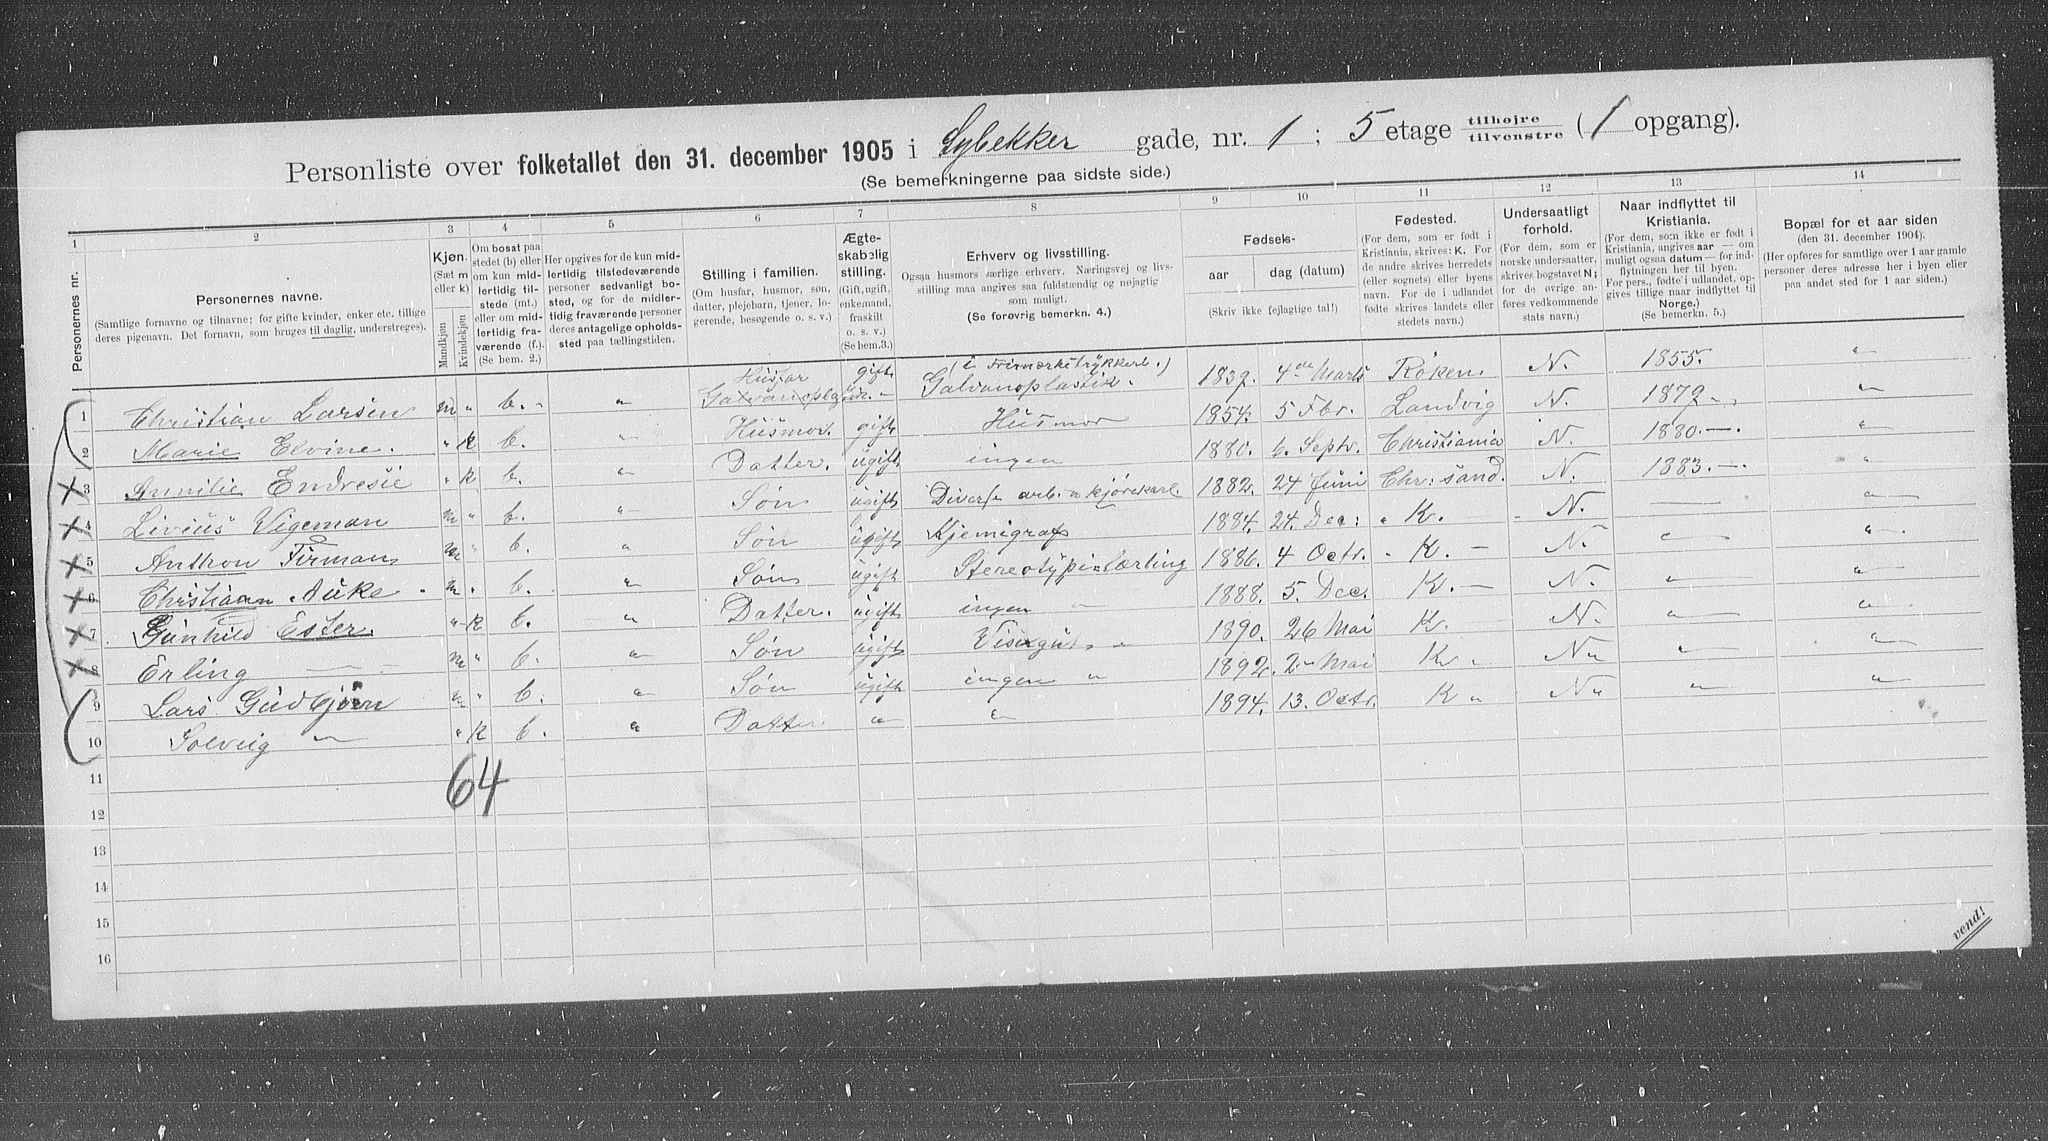 Personliste over folketallet den 31. december 1905 i Lybekker gade, nr. 1; 5 etage tilhøjre tilvenstre (1 opgang).
(Se bemerkningerne paa sidste side.)
1 2 3 4 5 6 7 8 9 10 11 12 13 14
Personernes nr.
Personernes navne.
(Samtlige fornavne og tilnavne; for gifte kvinder, enker etc. tillige deres pigenavn. Det fornavn, som bruges til daglig, understreges).
Kjøn.
(Sæt m eller k)
Mandkjøn
Kvindekjøn
Om bosat paa stedet (b) eller om kun midlertidig tilstede (mt.) eller om midlertidig fraværende (f.). (Se bem. 2.)
Her opgives for de kun midlertidig tilstedeværende personer sedvanligt bosted, og for de midlertidig fraværende personer deres antagelige opholdssted paa tællingstiden.
Stilling i familien.
(Om husfar, husmor, søn, datter, plejebarn, tjener, logerende, besøgende o. s. v.)
Ægteskabelig stilling.
(Gift, ugift, enkemand, fraskilt o. s. v.)
(Se bem. 3.)
Erhverv og livsstilling.
Ogsaa husmors særlige erhverv. Næringsvej og livsstilling maa angives saa fuldstændig og nøjagtig som muligt.
(Se forøvrig bemerkn. 4.)
Fødsels-
aar
dag (datum)
(Skriv ikke fejlagtige tal!)
Fødested.
(For dem, som er født i Kristiania, skrives: K. For de andre skrives herredets (eller sognets) eller byens navn. For de i udlandet fødte skrives landets eller stedets navn.)
Undersaatligt forhold.
(For dem, som er norske undersaatter, skrives bogstavet N; for de øvrige anføres vedkommende stats navn.)
Naar indflyttet til Kristiania.
(For dem, som ikke er født i Kristiania, angives aar — om muligt ogsaa datum — for indflytningen her til byen. For pers., fødte i udlandet, opgives tillige naar indflyttet til Norge.)
(Se bemerkn. 5.)
Bopæl for et aar siden
(den 31. december 1904).
(Her opføres for samtlige over 1 aar gamle personer deres adresse her i byen eller paa andet sted for 1 aar siden.)
1 Christian Larsen m " b. - " Husfar gift (i Frimærketrykkeri.) Galvanoplastik. 1839. 4de Marts Røken N. 1855. "
2 Marie Elvine. " k b. " Husmor. gift Husmor 1854. 5 Fbr. Landvig N. 1879 - "
3 Endresie " k b. " Datter. ugift ingen 1880. 6. Septr. Christiania N. 1880. - "
4 Livius Vigeman m " b. " Søn ugift Diverse arb. kjørekarl. 1882. 24 Juni Chr: sand. N. 1883. - "
5 Anthon Firman m " b. " Søn ugift Kjemigraf 1884. 24. Dec: K. N. — "
6 Christian Auke m " b. " Søn ugift Stereotypi-Lærling 1886. 4 Octr. K. - N. — "
7 Gunhild Ester. " k b. " Datter. ugift ingen " 1888. 5. Dec. K. - N. " "
8 Erling — m " b. " Søn ugift Visergut " 1890. 26 Mai K. N. " "
9 Lars Gudbjørn m " b. " Søn ugift ingen " 1892. 2 Mai K. N " " "
10 Solveig " " k b. " Datter " " 1894. 13. Octr. K " N " " "
11
64
12
13
14
15
16
vend!